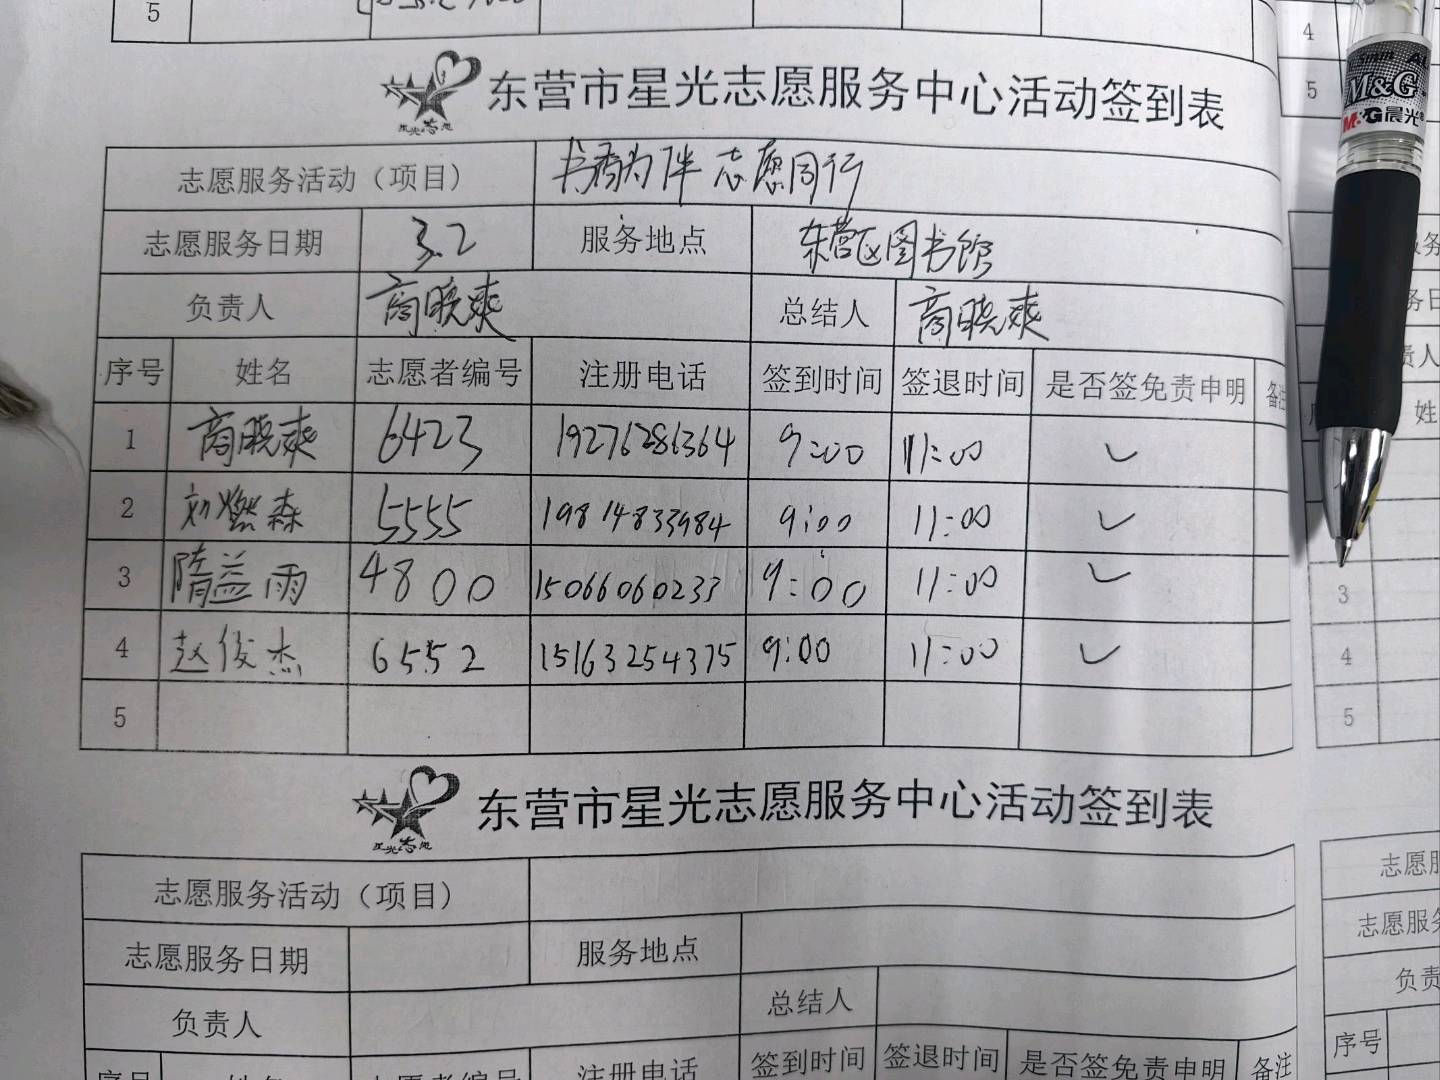 5
东营市星光志愿服务中心活动签到表
星光志愿
志愿服务活动（项目） 书香为伴 志愿同行
志愿服务日期 3.2 服务地点 东营区图书馆
负责人 商晓爽 总结人 商晓爽
序号 姓名 志愿者编号 注册电话 签到时间 签退时间 是否签免责申明 备注
1 商晓爽 6423 19276286364 9:00 11:00 ✓
2 刘燃森 5555 19814833984 9:00 11:00 ✓
3 隋益雨 4800 15066060233 9:00 11:00 ✓
4 赵俊杰 6552 15163254375 9:00 11:00 ✓
5
东营市星光志愿服务中心活动签到表
星光志愿
志愿服务活动（项目）
志愿服务日期 服务地点
负责人 总结人
序号 姓名 志愿者编号 注册电话 签到时间 签退时间 是否签免责申明 备注
4
5
M&G
M&G晨光
姓
3
4
5
志愿服
志愿服务
负责
序号